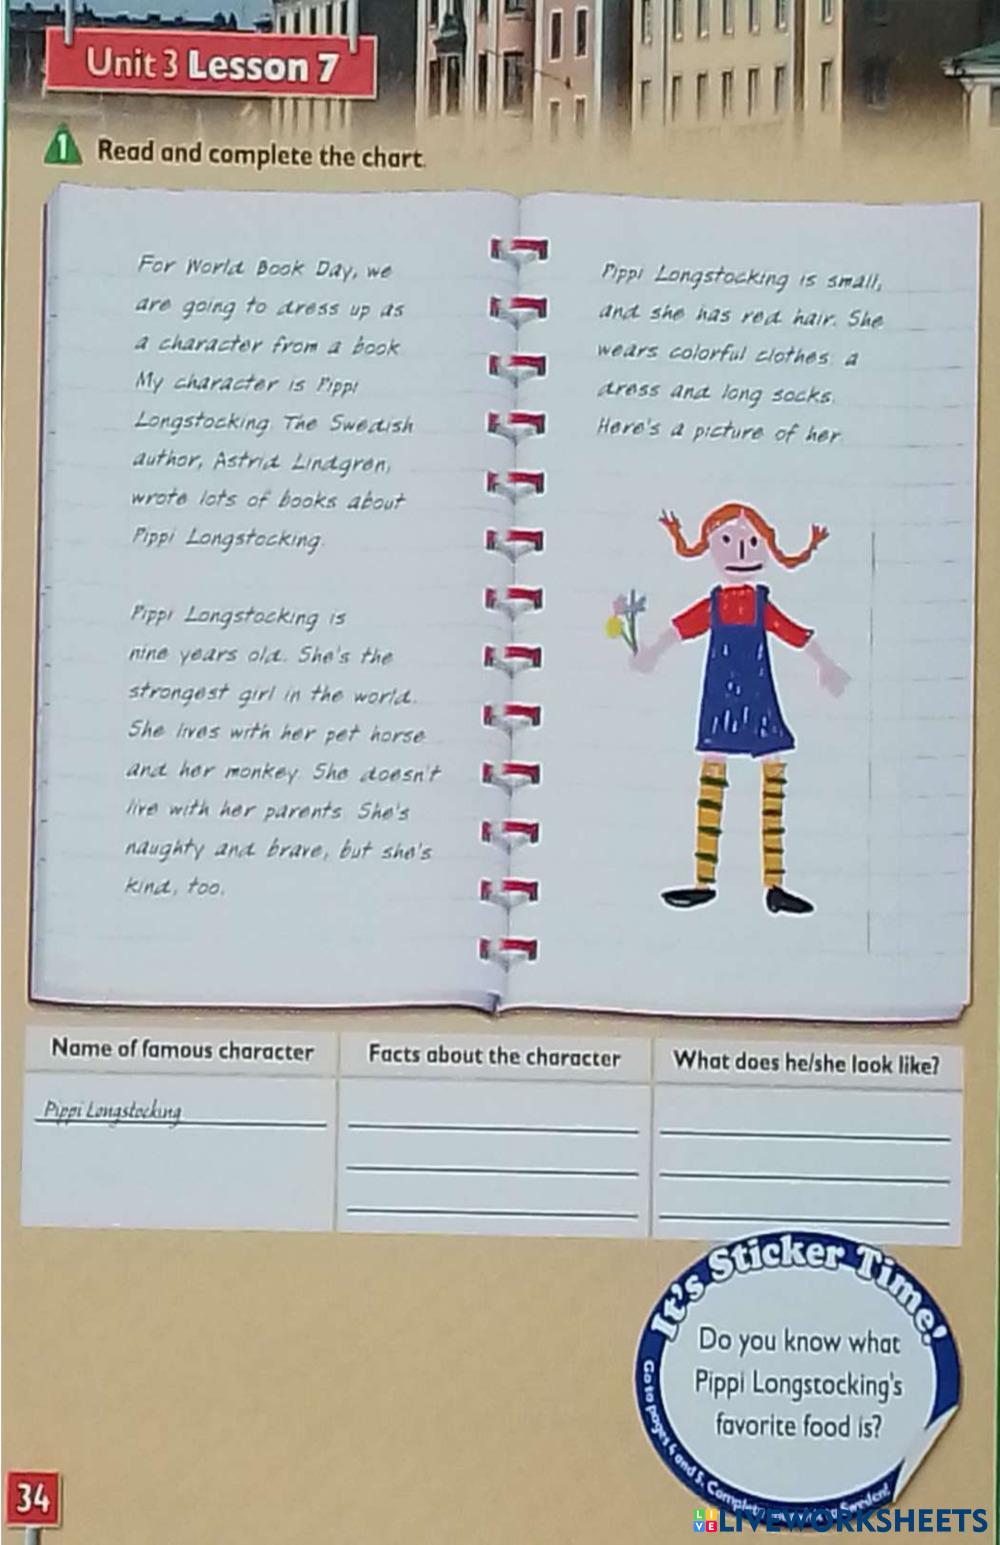 Unit 3 Lesson 7
1 Read and complete the chart.
For World Book Day, we
are going to dress up as
a character from a book
My character is Pippi
Longstocking. The Swedish
author, Astrid Lindgren,
wrote lots of books about
Pippi Longstocking.
Pippi Longstocking is
nine years old. She's the
strongest girl in the world.
She lives with her pet horse
and her monkey. She doesn't
live with her parents. She's
naughty and brave, but she's
kind, too.
Pippi Longstocking is small,
and she has red hair. She
wears colorful clothes: a
dress and long socks.
Here's a picture of her.
Name of famous character
Facts about the character
What does he/she look like?
Pippi Longstocking
It's Sticker Time!
Do you know what
Pippi Longstocking's
favorite food is?
Go to pages 4 and 5. Complete Sweden!
34
LIVEWORKSHEETS